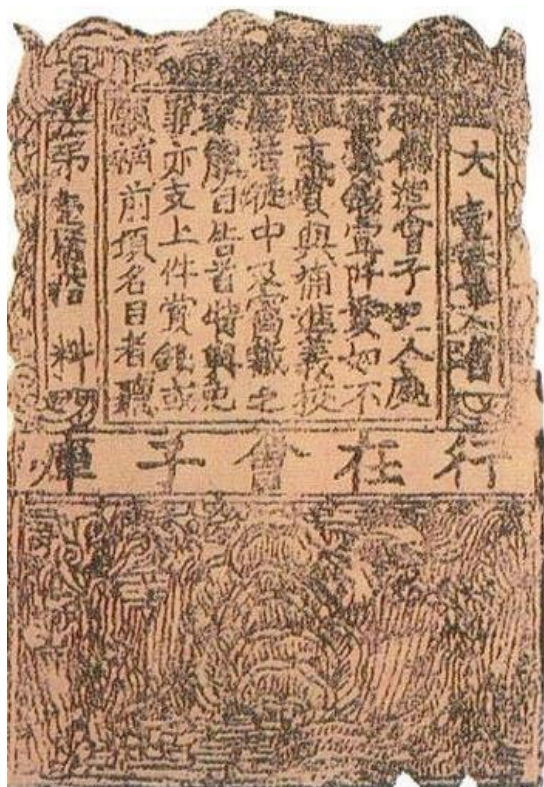 大
敕偽造會子犯人處
斬賞錢壹阡貫如不
願支賞與補進義校
尉若徒中及窩藏之
家能自告首特與免
罪亦支上件賞錢或
願補前項名目者聽
第 料
行在會子庫